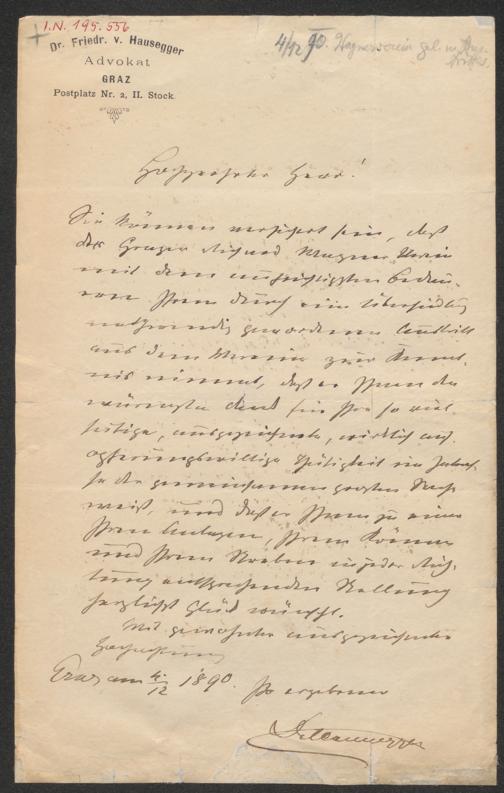 I.N. 195.556
Dr. Friedr. v. Hausegger
Advokat
GRAZ
Postplatz Nr. 2, II. Stock.
4/12 90. Wagnerverein
Hochverehrter Herr!
Sie können versichert sein, daß
der Grazer Richard Wagner Verein
mit dem aufrichtigsten Bedau-
ern Ihren durch eine Übersiedlung
nothwendig gewordenen Austritt
aus dem Vereine zur Kennt-
nis nimmt, daß er Ihnen den
wärmsten Dank für Ihre so viel-
seitige, ausgezeichnete, wirklich auf-
opferungswillige Thätigkeit im Interes-
se der gemeinsamen großen Sache
weiß, und daß er Ihnen zu einer
Ihren Anlagen, Ihrem Können
und Ihrem Streben in jeder Rich-
tung entsprechenden Stellung
herzlichst Glück wünscht.
Mit gewohnter ausgezeichneter
Hochachtung
Graz am 4./12 1890. Ihr ergebener
Dr. v. Hausegger